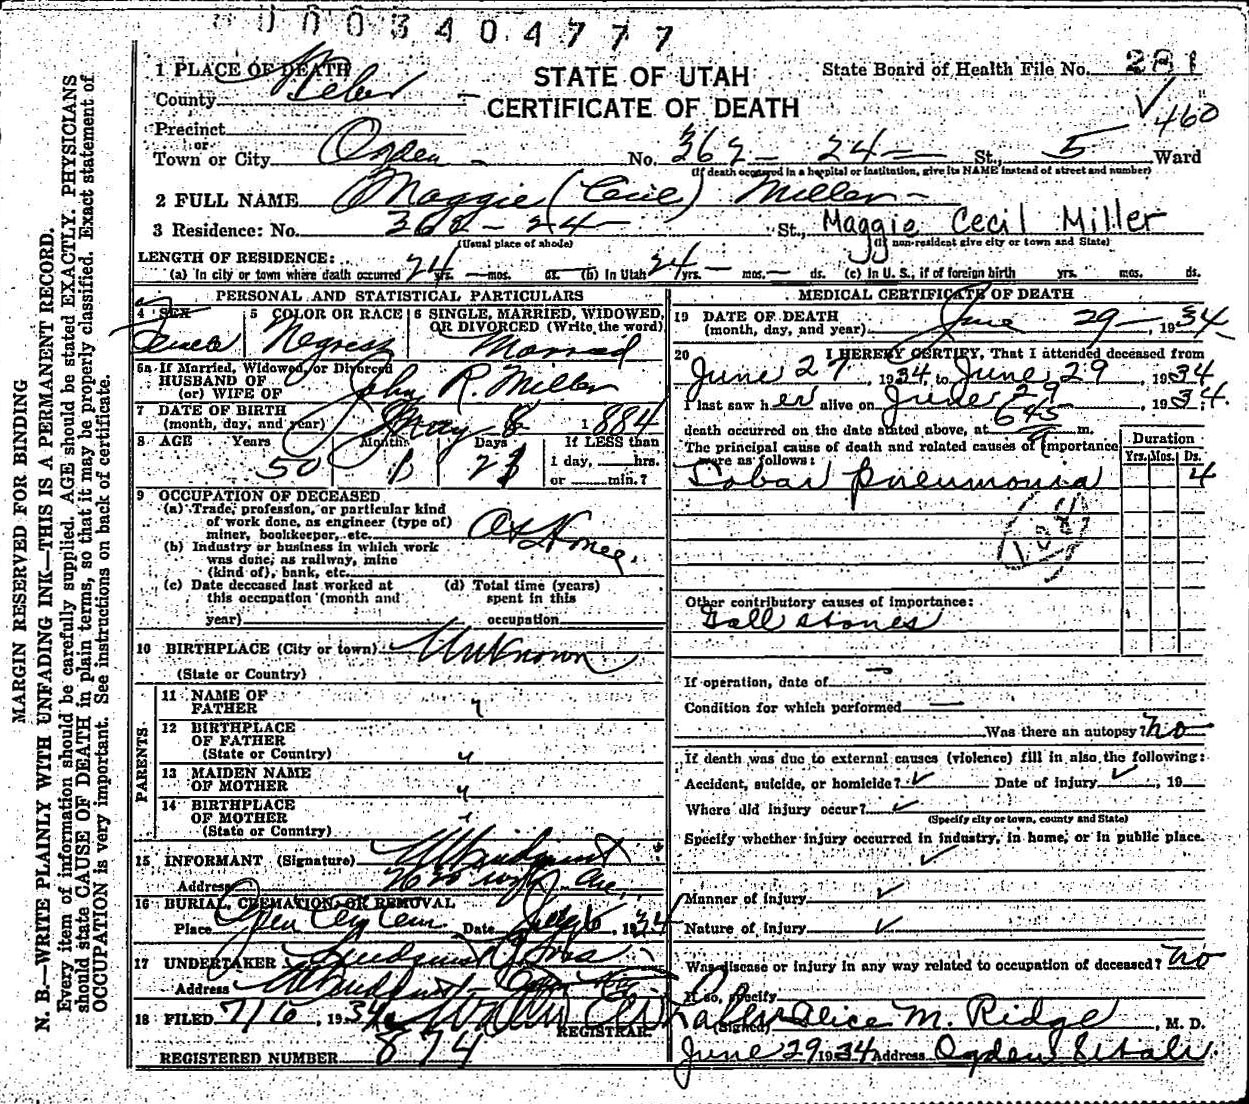 000340477 7
MARGIN RESERVED FOR BINDING
N. B.—WRITE PLAINLY WITH UNFADING INK—THIS IS A PERMANENT RECORD.
Every item of information should be carefully supplied. AGE should be stated EXACTLY. PHYSICIANS
should state CAUSE OF DEATH in plain terms, so that it may be properly classified. Exact statement of
OCCUPATION is very important. See instructions on back of certificate.
STATE OF UTAH
CERTIFICATE OF DEATH
State Board of Health File No. 281
✓460
1 PLACE OF DEATH
County Weber
Precinct
or
Town or City Ogden No. 362 - 24 - St., 5 Ward
(If death occurred in a hospital or institution, give its NAME instead of street and number)
2 FULL NAME Maggie (Cecil) Miller
3 Residence: No. 362 - 24 - St., Maggie Cecil Miller
(Usual place of abode) (If non-resident give city or town and State)
LENGTH OF RESIDENCE:
(a) In city or town where death occurred 24 yrs. — mos. ds. (b) In Utah 24 yrs. — mos. — ds. (c) In U. S., if of foreign birth yrs. mos. ds.
PERSONAL AND STATISTICAL PARTICULARS
4 SEX Female
5 COLOR OR RACE Negress
6 SINGLE, MARRIED, WIDOWED, OR DIVORCED (Write the word) Married
6a If Married, Widowed, or Divorced
HUSBAND OF
(or) WIFE OF John R. Miller
7 DATE OF BIRTH
(month, day, and year) May 8 1884
8 AGE Years Months Days If LESS than
50 1 1 day, hrs.
or min.?
9 OCCUPATION OF DECEASED
(a) Trade, profession, or particular kind
of work done, as engineer (type of)
miner, bookkeeper, etc. At Home
(b) Industry or business in which work
was done; as railway, mine
(kind of), bank, etc.
(c) Date deceased last worked at
this occupation (month and
year)
(d) Total time (years)
spent in this
occupation
10 BIRTHPLACE (City or town) Unknown
(State or Country)
PARENTS
11 NAME OF
FATHER "
12 BIRTHPLACE
OF FATHER
(State or Country) "
13 MAIDEN NAME
OF MOTHER "
14 BIRTHPLACE
OF MOTHER
(State or Country) "
15 INFORMANT (Signature)
Address Ave.
16 BURIAL, CREMATION, OR REMOVAL
Place Ogden City Cem. Date July 6, 1934
17 UNDERTAKER Lindquist & Sons
Address Ogden
18 FILED 7/6, 1934
REGISTRAR
REGISTERED NUMBER 874
MEDICAL CERTIFICATE OF DEATH
19 DATE OF DEATH
(month, day, and year) June 29 —, 1934
20 I HEREBY CERTIFY, That I attended deceased from
June 27, 1934, to June 29, 1934
I last saw her alive on June 29, 1934.
death occurred on the date stated above, at 645 a m.
The principal cause of death and related causes of importance
were as follows:
Duration
Yrs. Mos. Ds.
Lobar Pneumonia 4
108
Other contributory causes of importance:
Gall stones
If operation, date of —
Condition for which performed —
Was there an autopsy? no
If death was due to external causes (violence) fill in also the following:
Accident, suicide, or homicide? ✓ Date of injury ✓, 19
Where did injury occur? ✓
(Specify city or town, county and State)
Specify whether injury occurred in industry, in home, or in public place.
✓
Manner of injury ✓
Nature of injury ✓
Was disease or injury in any way related to occupation of deceased? no
If so, specify
(Signed) Alice M. Ridge, M. D.
June 29 1934 Address Ogden Utah